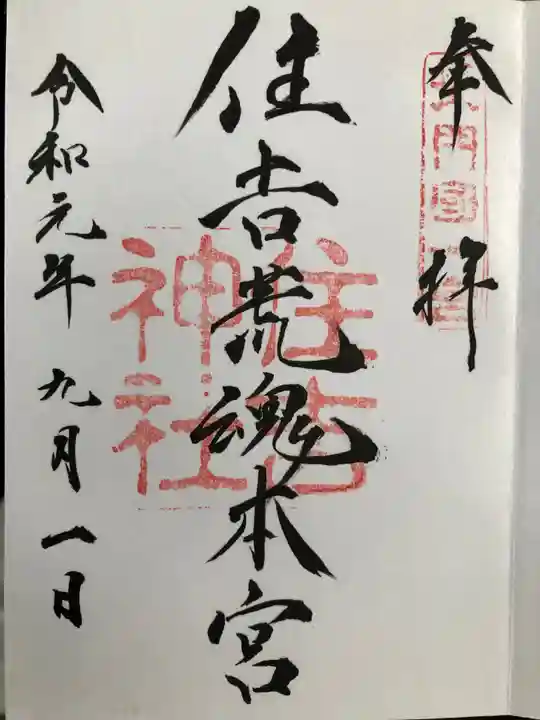 奉拝
長門國一宮
住吉荒魂本宮
住吉
神社
令和元年九月一日